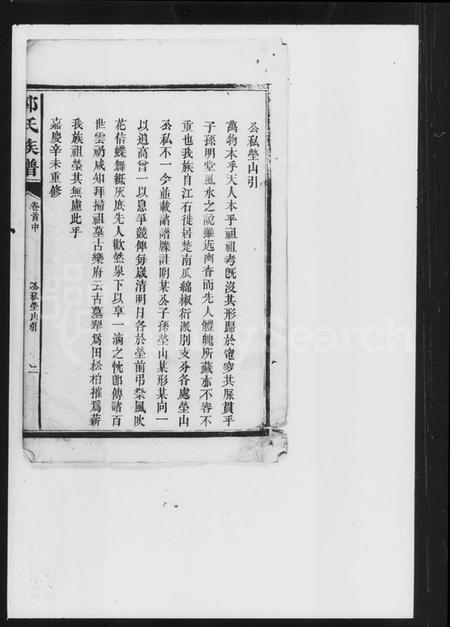 公私塋山引
萬物本乎天人本乎祖祖考旣沒其形歸於窀穸其脈貫乎
子孫明堂風水之說雖近幽杳而先人體魄所藏亦不容不
重也我族自江右徙居楚南瓜綿椒衍派別支分各處塋山
公私不一今並載諸譜牒註明某公子孫塋山某形某向一
以道高曾一以息爭競俾每歲清明日各於塋前弔祭風吹
花信蝶舞紙灰庶先人歡然泉下以享一滴之忱卽傳諸百
世雲礽咸知拜掃祖墓古樂府云古墓犂爲田松柏摧爲薪
我族祖塋其無慮此乎
嘉慶辛未重修
郭氏族譜
卷首中
公私塋山引
一